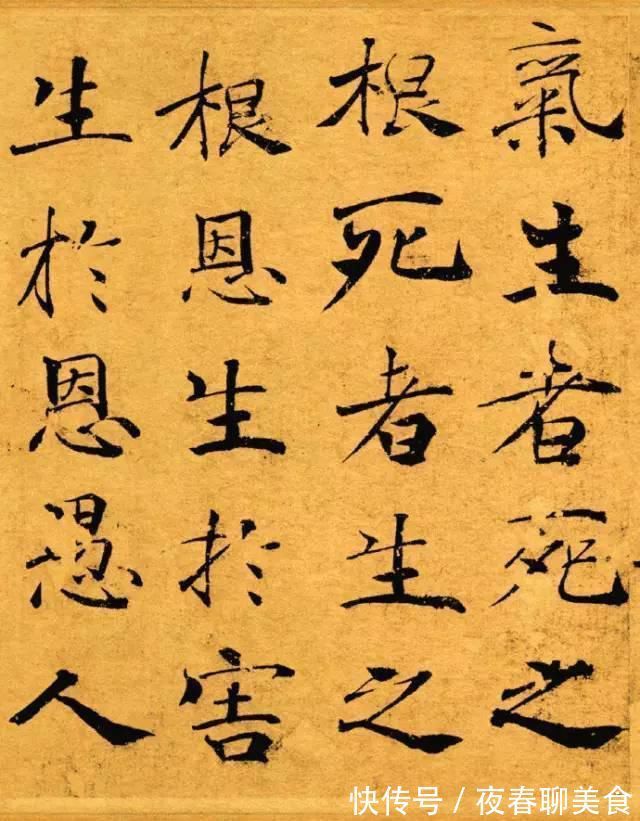 氣生者死之
根死者生之
根恩生於害
生於恩愚人
快传号/夜春聊美食